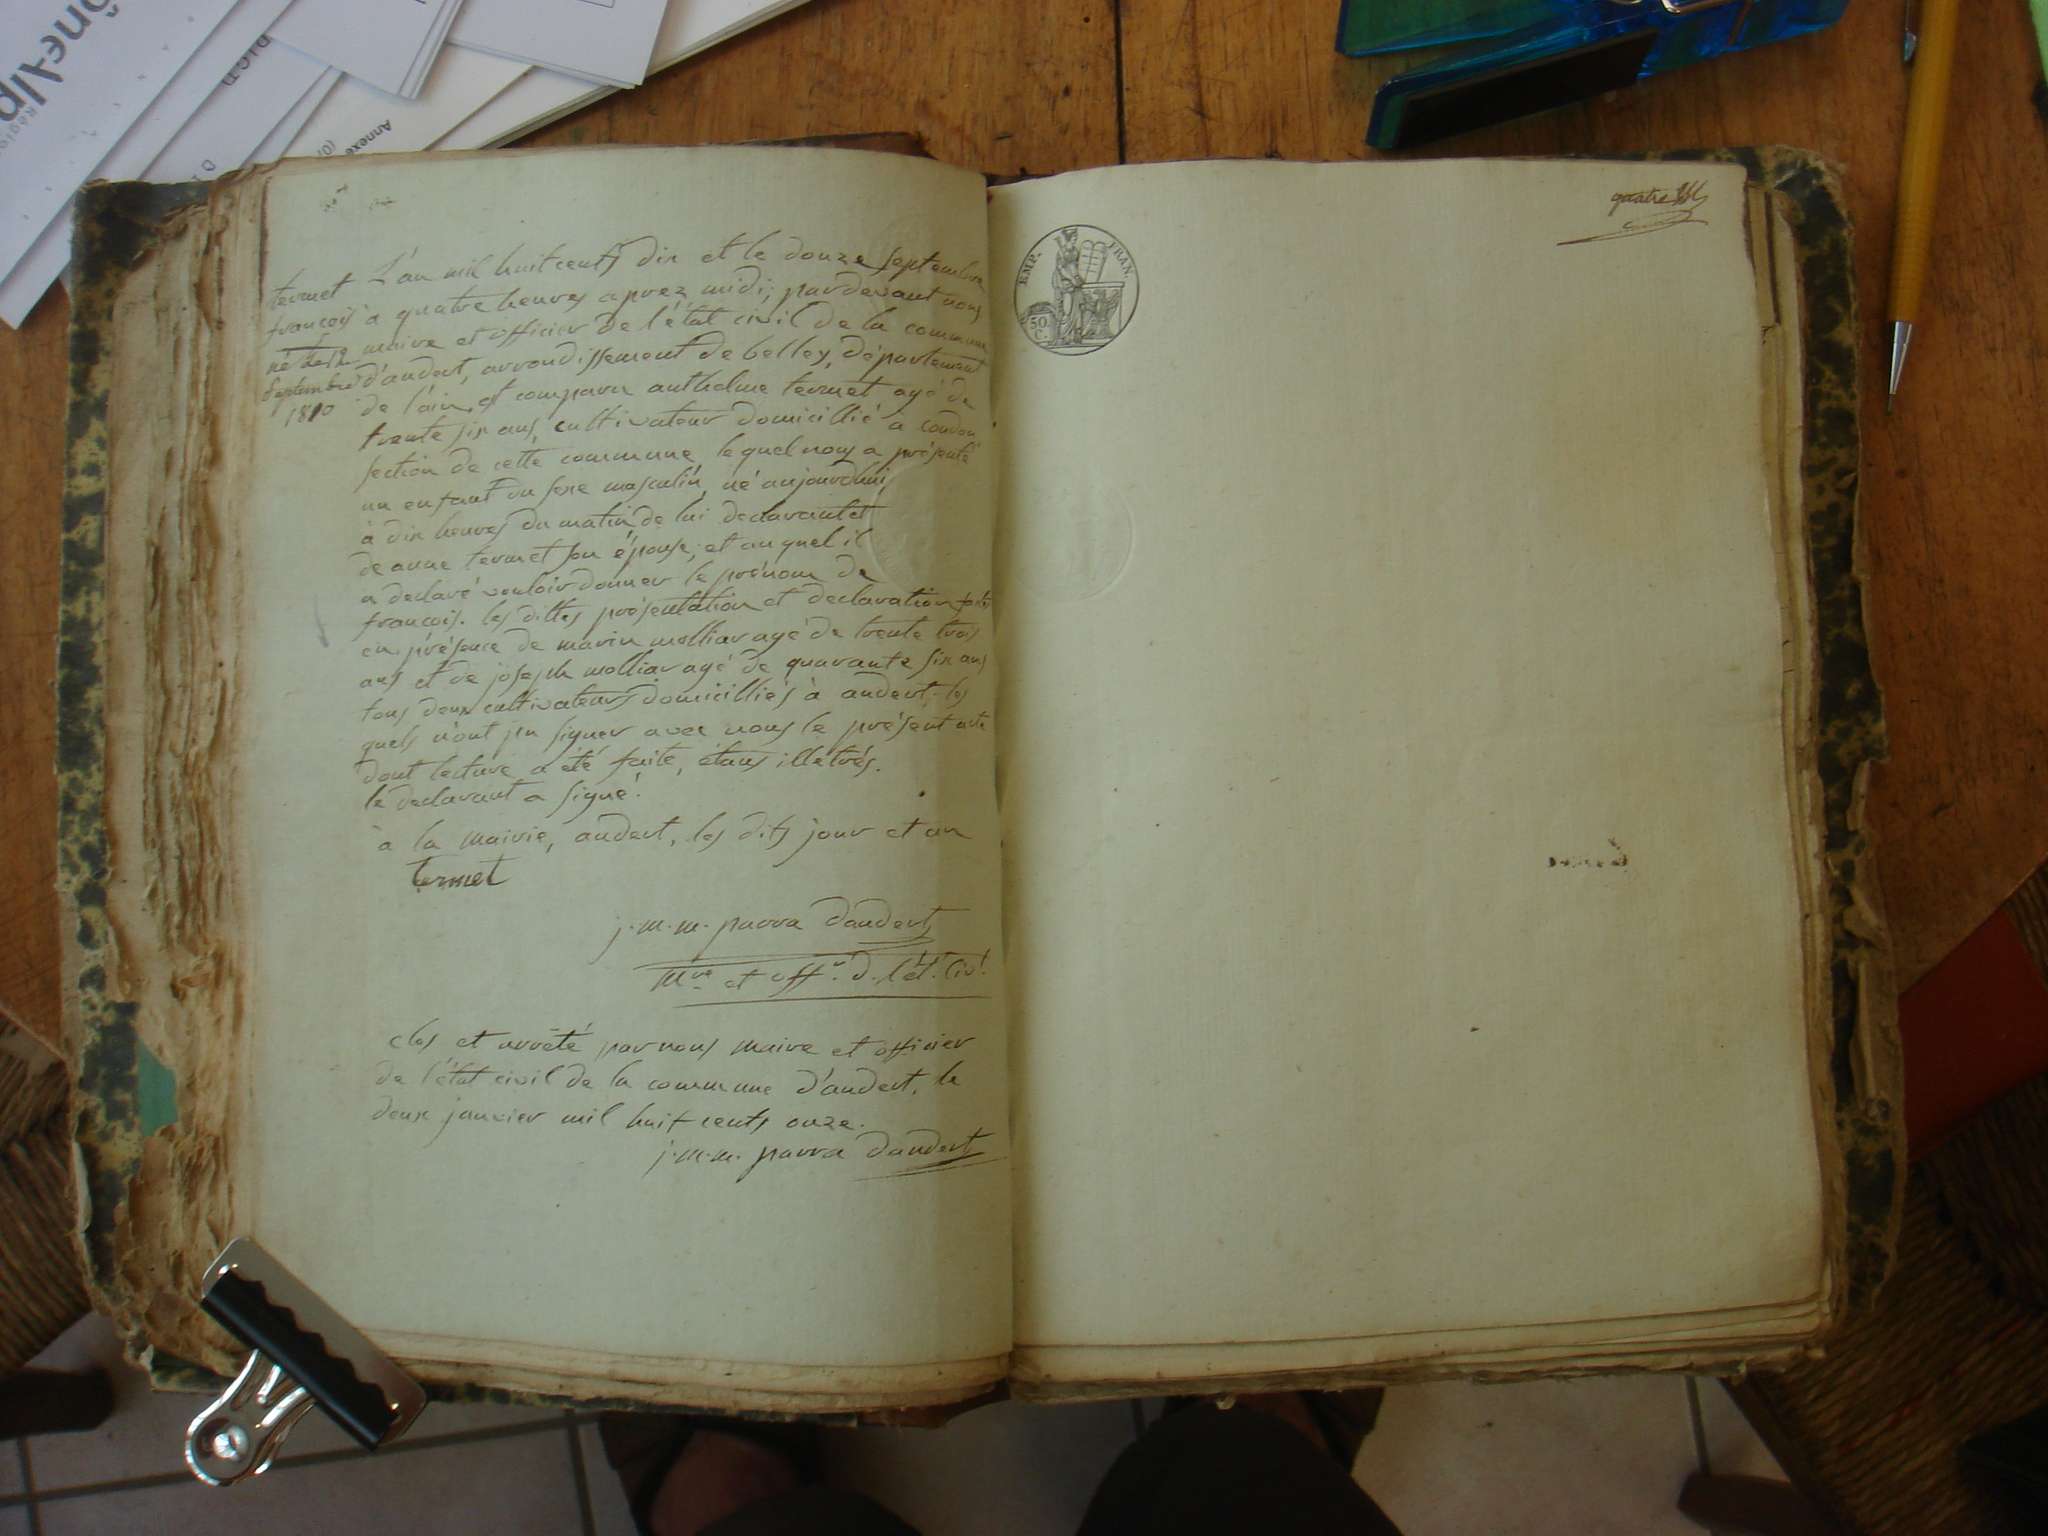 termet
françois
né le 12
Septembre
1810
L'an mil huit cents dix et le douze septembre
à quatre heures aprez midi, pardevant nous
maire et officier de l'état civil de la commune
d'andert, arrondissement de belley, département
de l'ain, est comparu anthelme termet, agé de
trente six ans, cultivateur domicillié à condon
section de cette commune lequel nous a présenté
un enfant du sexe masculin, né aujourdhui
à dix heures du matin, de lui declarant et
de anne termet son épouse, et auquel il
a declaré vouloir donner le prénom de
françois. les dittes présentation et declaration faites
en présence de marin molliar agé de trente trois
ans et de joseph molliar agé de quarante six ans
tous deux cultivateurs domicilliés à andert, les
quels n'ont pu signer avec nous le présent acte
dont lecture a été faite, étans illétrés.
le declarant a signé.
à la mairie, andert, les dits jour et an
termet
j.m.m. parra dandert
Mre et offr. d. l'ét. civ.
clos et arrêté par nous maire et officier
de l'état civil de la commune d'andert, le
deux janvier mil huit cents onze.
j.m.m. parra dandert
quatre
EMP. FRAN.
50
C.
Annexe